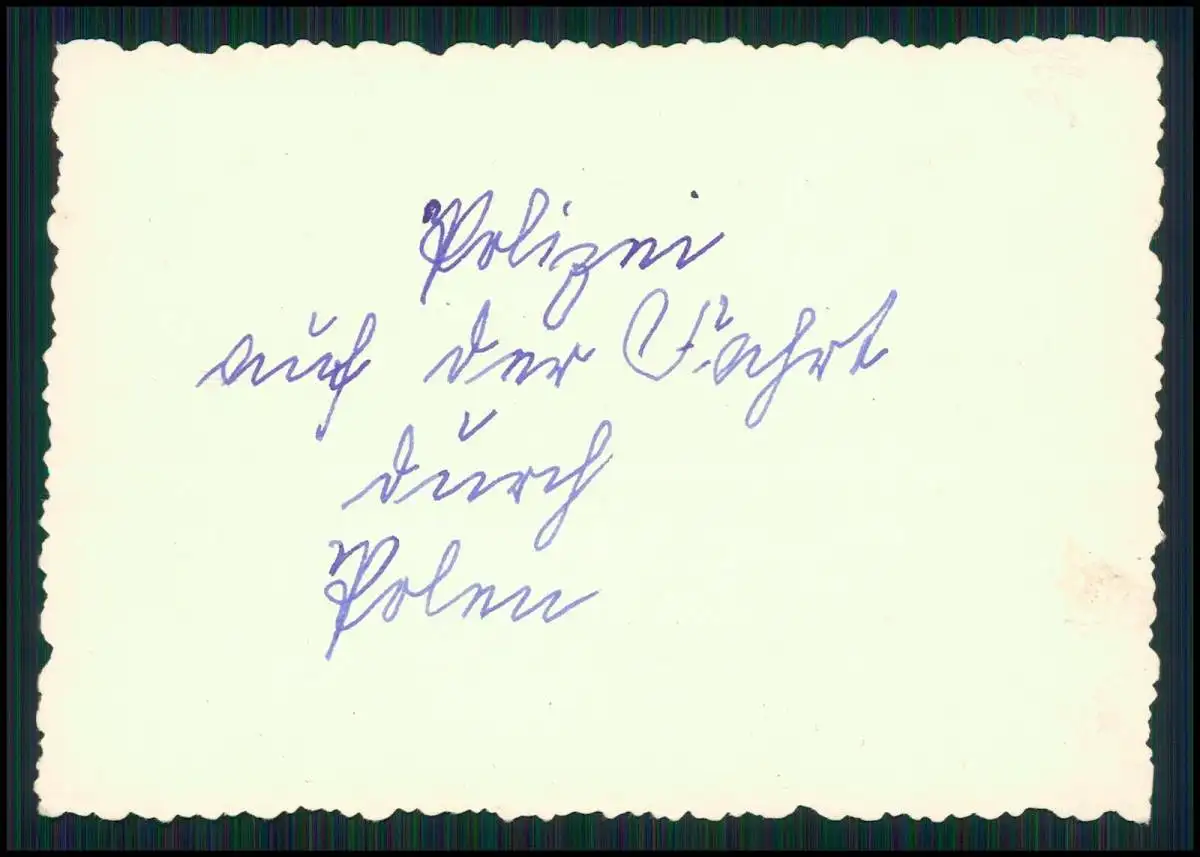 Polizei
auf der Fahrt
durch
Polen